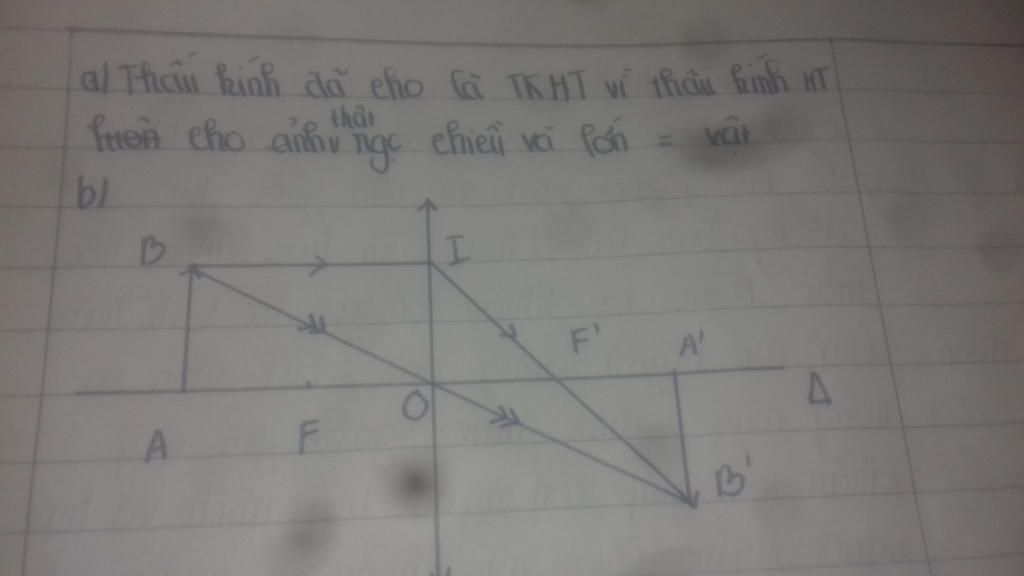 a) Thấu kính đã cho là TKHT vì thấu kính HT
cho ảnh thật ngc chiều và lớn = vật
b)
B I
F' A'
O Δ
A F
B'